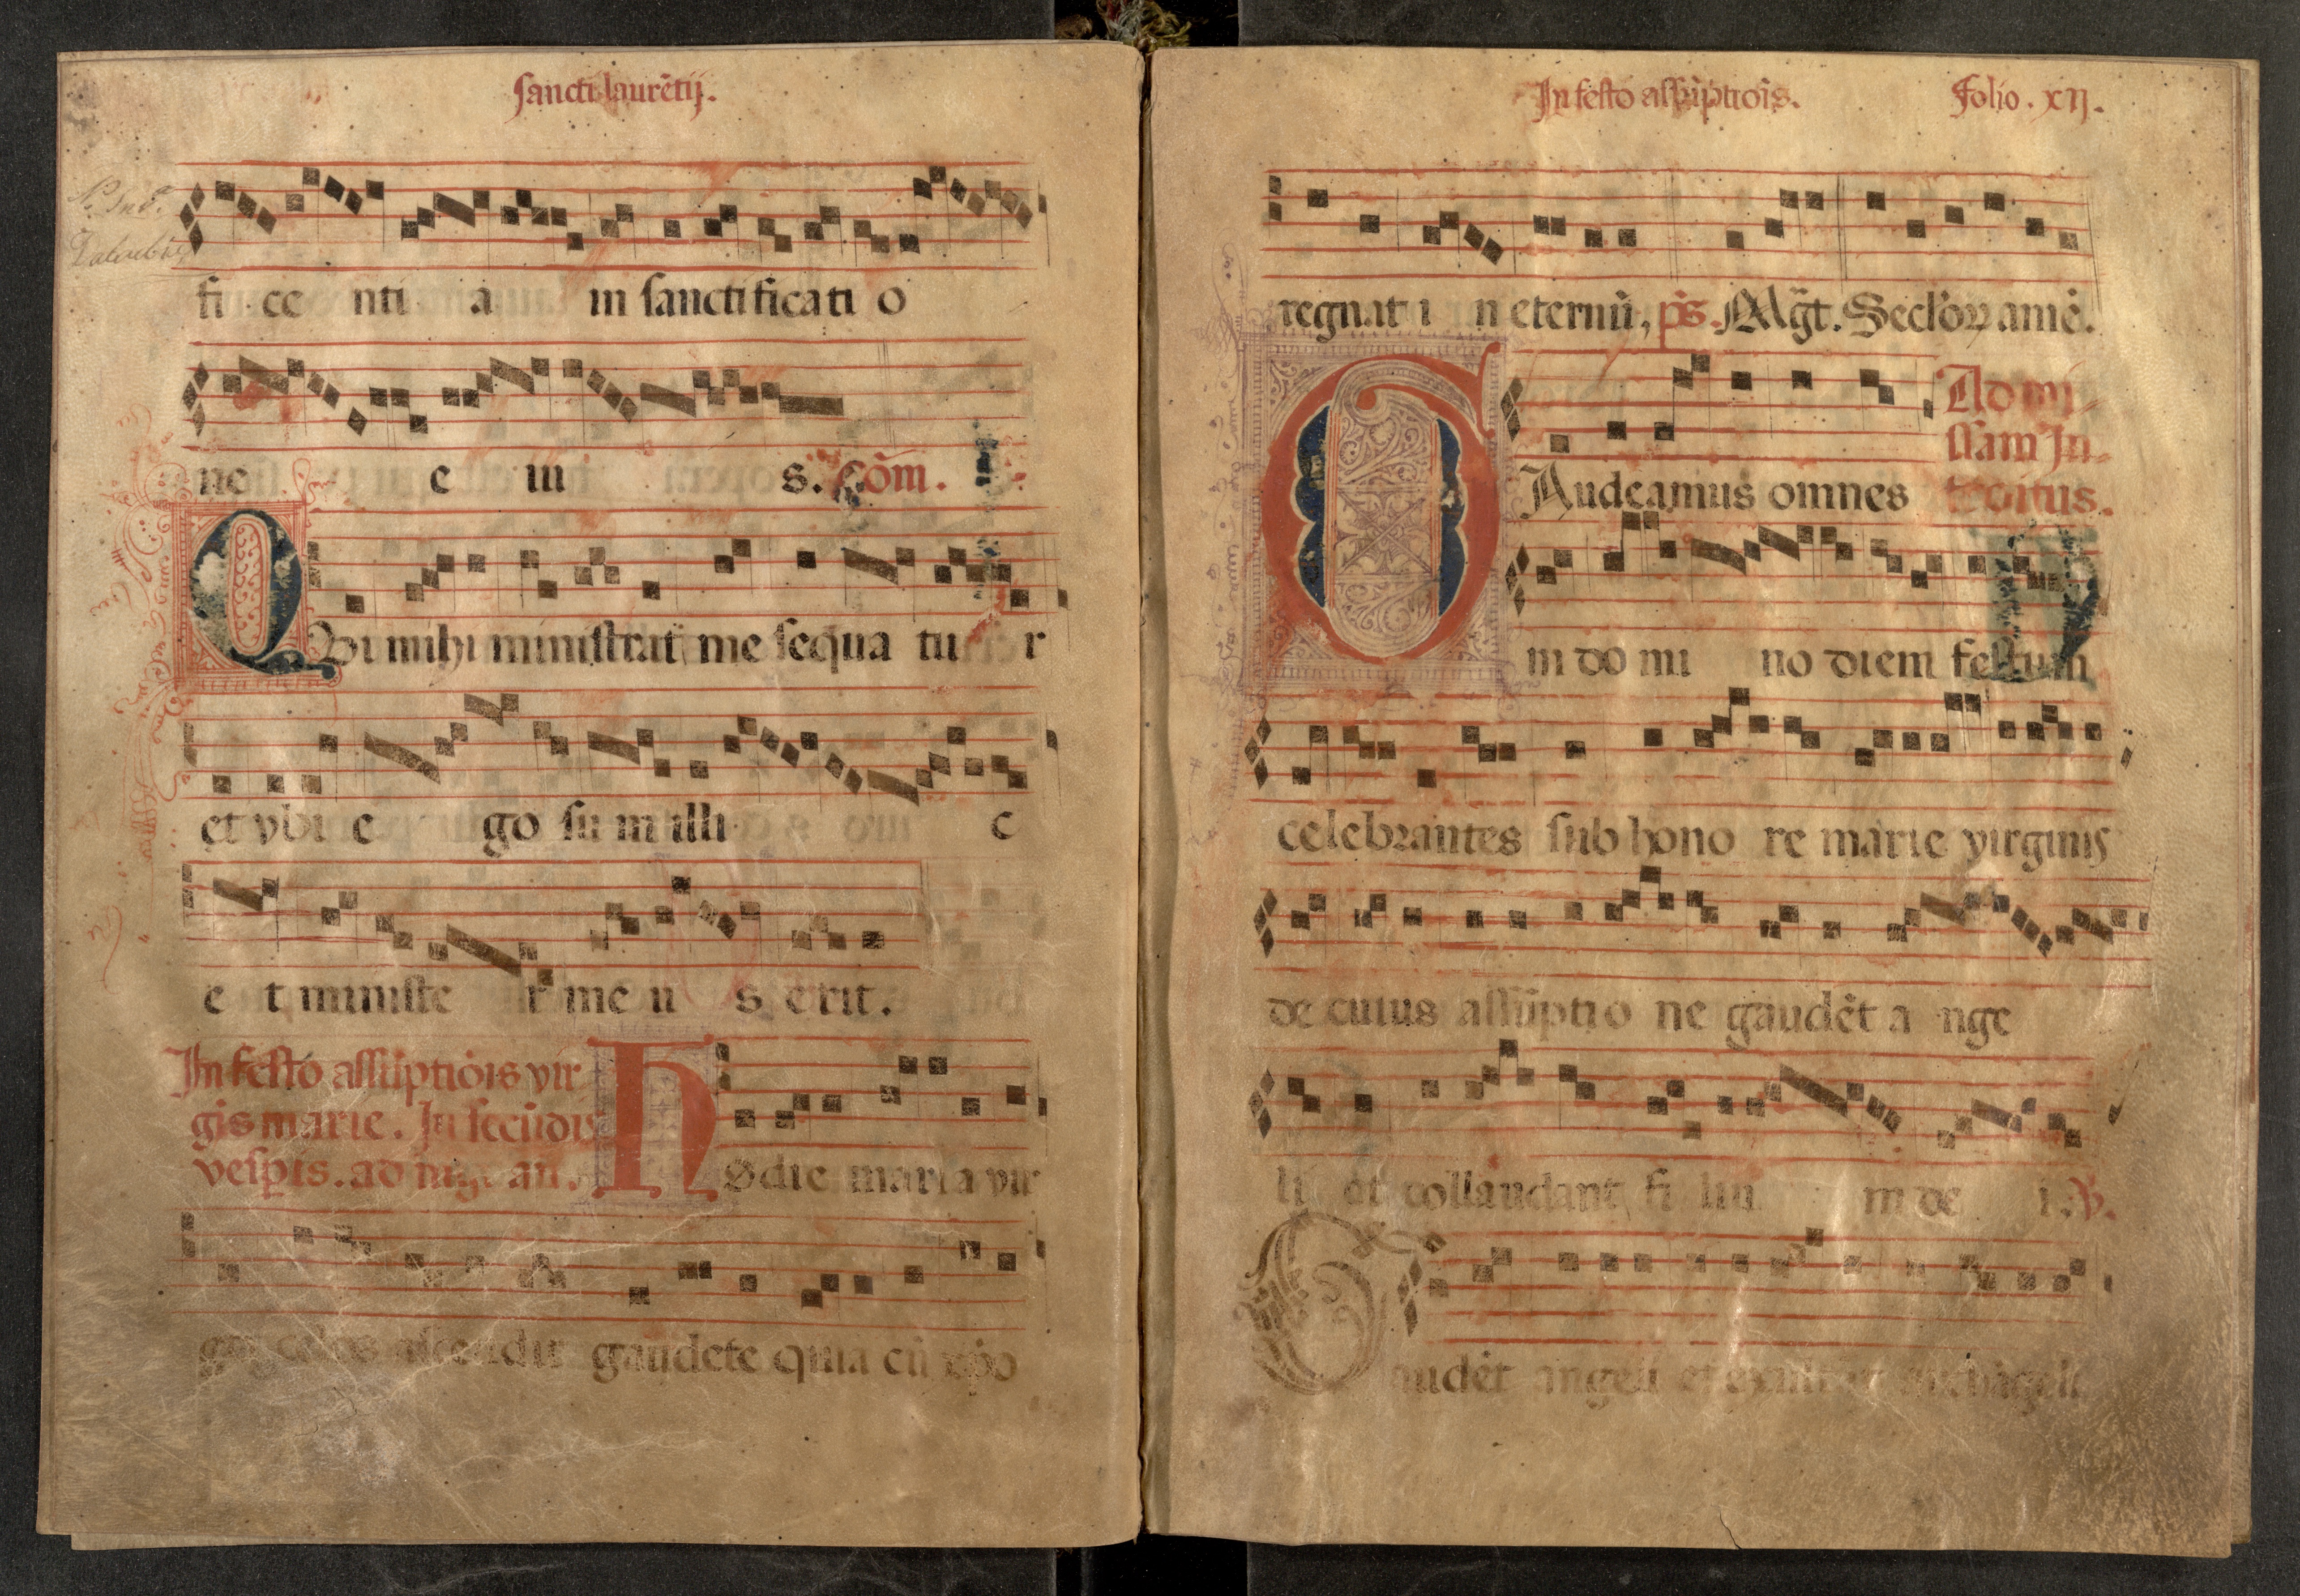 sancti laurētij.
fi ce nti a in sanctificati o
ne e iu s. Cōm.
Qvi mihi ministrat me sequa tu r
et vbi e go su m illi c
e t ministe r me u s erit.
In festo assūptiōis vir
gis marie. In secūdis
vesp̄is. ad mḡt an̄.
Hodie maria vir
go celos ascendit gaudete quia cū xp̄o
In festo assūptiōis. Folio. xij.
regnat i n eternū, p̄s. Mḡt. Seclōꝝ amē.
Ad mi-
ssam In-
troitus.
GAudeamus omnes
in do mi no diem festum
celebrantes sub hono re marie virginis
de cuius assūptio ne gaudēt a nge
li et collaudant fi liu m de i. ℣.
Gaudēt angeli et exultāt archāgeli